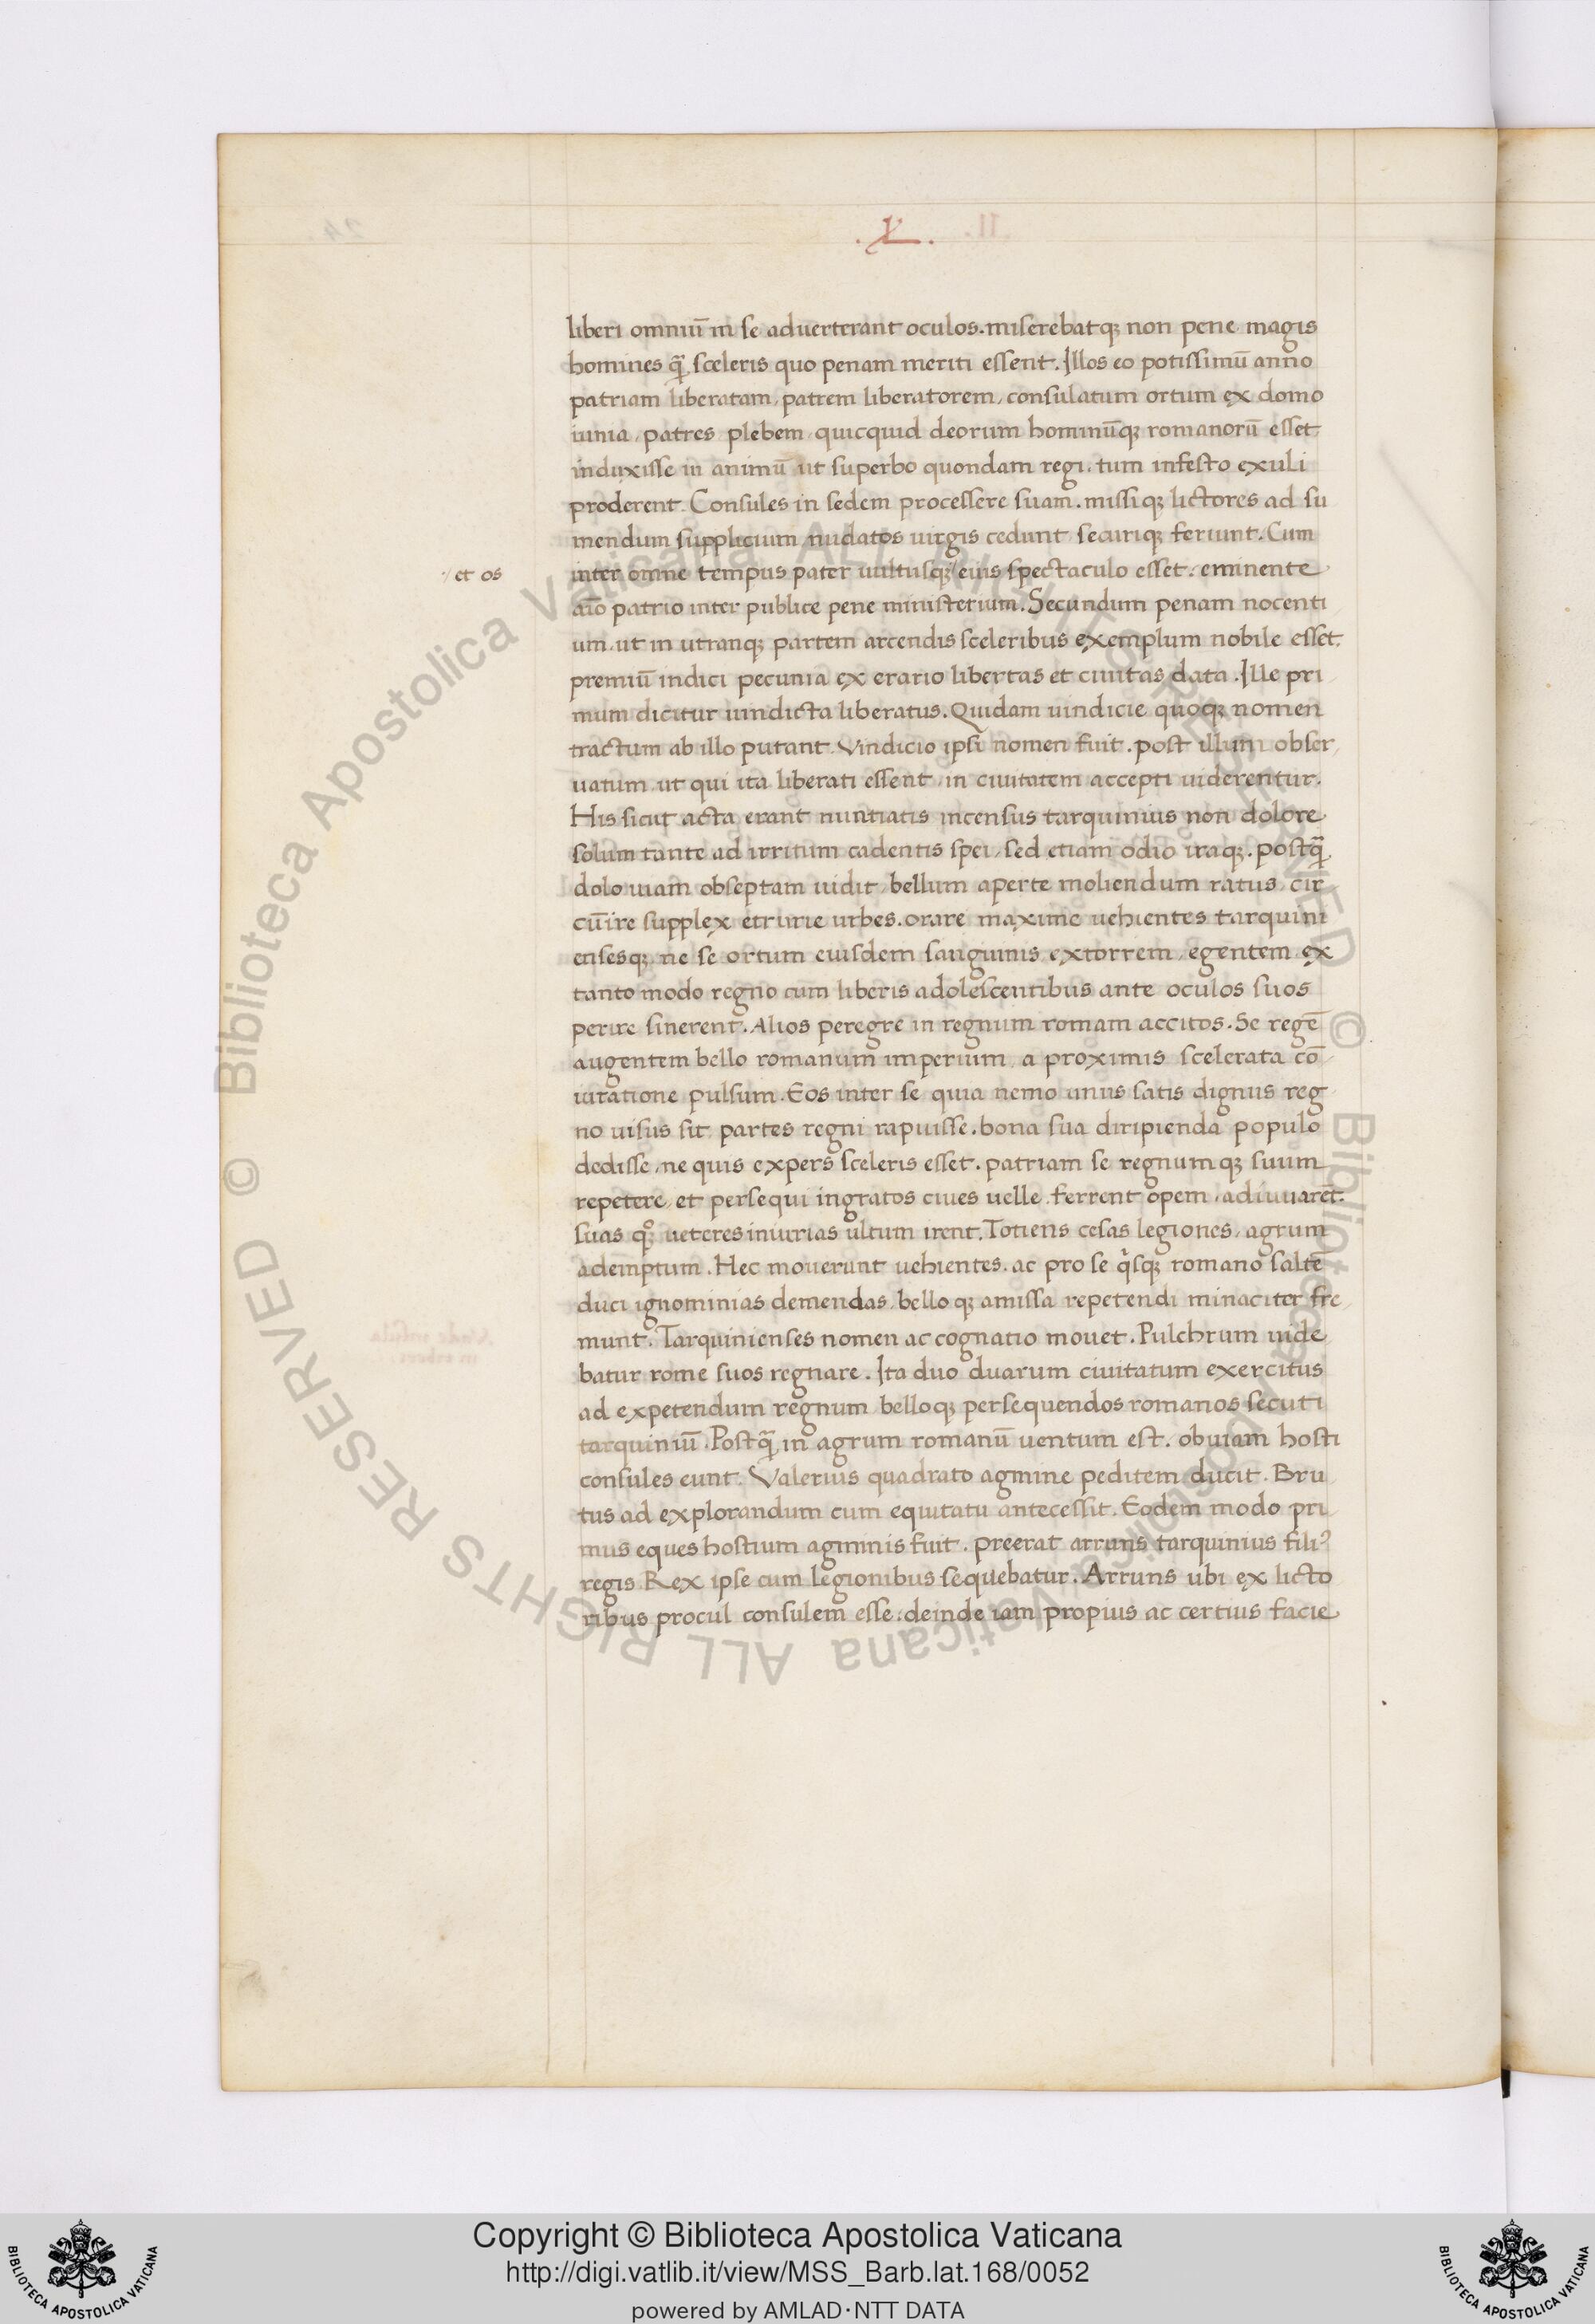 .X.
liberi omniū in se aduerterant oculos. miserebatqꝫ non pene magis
homines qꝫ̄ sceleris quo penam meriti essent. Illos eo potissimū anno
patriam liberatam, patrem liberatorem, consulatum ortum ex domo
iunia, patres plebem, quicquid deorum hominūqꝫ romanorū esset
induxisse in animū ut superbo quondam regi. tum infesto exuli
proderent. Consules in sedem processere suam. missiqꝫ lictores ad su
mendum supplicium nudatos uirgis cedunt securiqꝫ feriunt. Cum
·/ et os
inter omne tempus pater uultusqꝫ / eius spectaculo esset. eminente
aīo patrio inter publice pene ministerium. Secundum penam nocenti
um. ut in utranqꝫ partem arcendis sceleribus exemplum nobile esset.
premiū indici pecunia ex erario libertas et ciuitas data. Ille pri
mum dicitur uindicta liberatus. Quidam uindicie quoqꝫ nomen
tractum ab illo putant. Vindicio ipsi nomen fuit. post illum obser
uatum ut qui ita liberati essent in ciuitatem accepti uiderentur.
His sicut acta erant nuntiatis incensus tarquinius non dolore
solum tante ad irritum cadentis spei, sed etiam odio iraqꝫ. postqꝫ̄
dolo uiam obseptam uidit, bellum aperte moliendum ratus, cir
cūire supplex etrurie urbes. orare maxime uehientes tarquini
ensesqꝫ ne se ortum eiusdem sanguinis extorrem, egentem ex
tanto modo regno cum liberis adolescentibus ante oculos suos
perire sinerent. Alios peregre in regnum romam accitos. Se regē
augentem bello romanum imperium, a proximis scelerata cō
iuratione pulsum. Eos inter se quia nemo unus satis dignus reg
no uisus sit partes regni rapuisse. bona sua diripienda populo
dedisse, ne quis expers sceleris esset. patriam se regnumqꝫ suum
repetere, et persequi ingratos ciues uelle. ferrent opem, adiuuarēt.
suas qꝫͦ ueteres iniurias ultum irent. Totiens cesas legiones, agrum
ademptum. Hec mouerunt uehientes. ac pro se qͥsqꝫ romano saltē
duci ignominias demendas, belloqꝫ amissa repetendi minaciter fre
munt. Tarquinienses nomen ac cognatio mouet. Pulchrum uide
batur rome suos regnare. Ita duo duarum ciuitatum exercitus
ad expetendum regnum, belloqꝫ persequendos romanos secuti
tarquiniū. Postqꝫ̄ in agrum romanū uentum est. obuiam hosti
consules eunt. Valerius quadrato agmine peditem ducit. Bru
tus ad explorandum cum equitatu antecessit. Eodem modo pri
mus eques hostium agminis fuit. preerat arruns tarquinius filiꝰ
regis. Rex ipse cum legionibus sequebatur. Arruns ubi ex licto
ribus procul consulem esse. deinde iam propius ac certius facie
© Biblioteca Apostolica Vaticana ALL RIGHTS RESERVED © Biblioteca Apostolica Vaticana ALL RIGHTS RESERVED
Copyright © Biblioteca Apostolica Vaticana
http://digi.vatlib.it/view/MSS_Barb.lat.168/0052
powered by AMLAD·NTT DATA
BIBLIOTECA APOSTOLICA VATICANA
BIBLIOTECA APOSTOLICA VATICANA